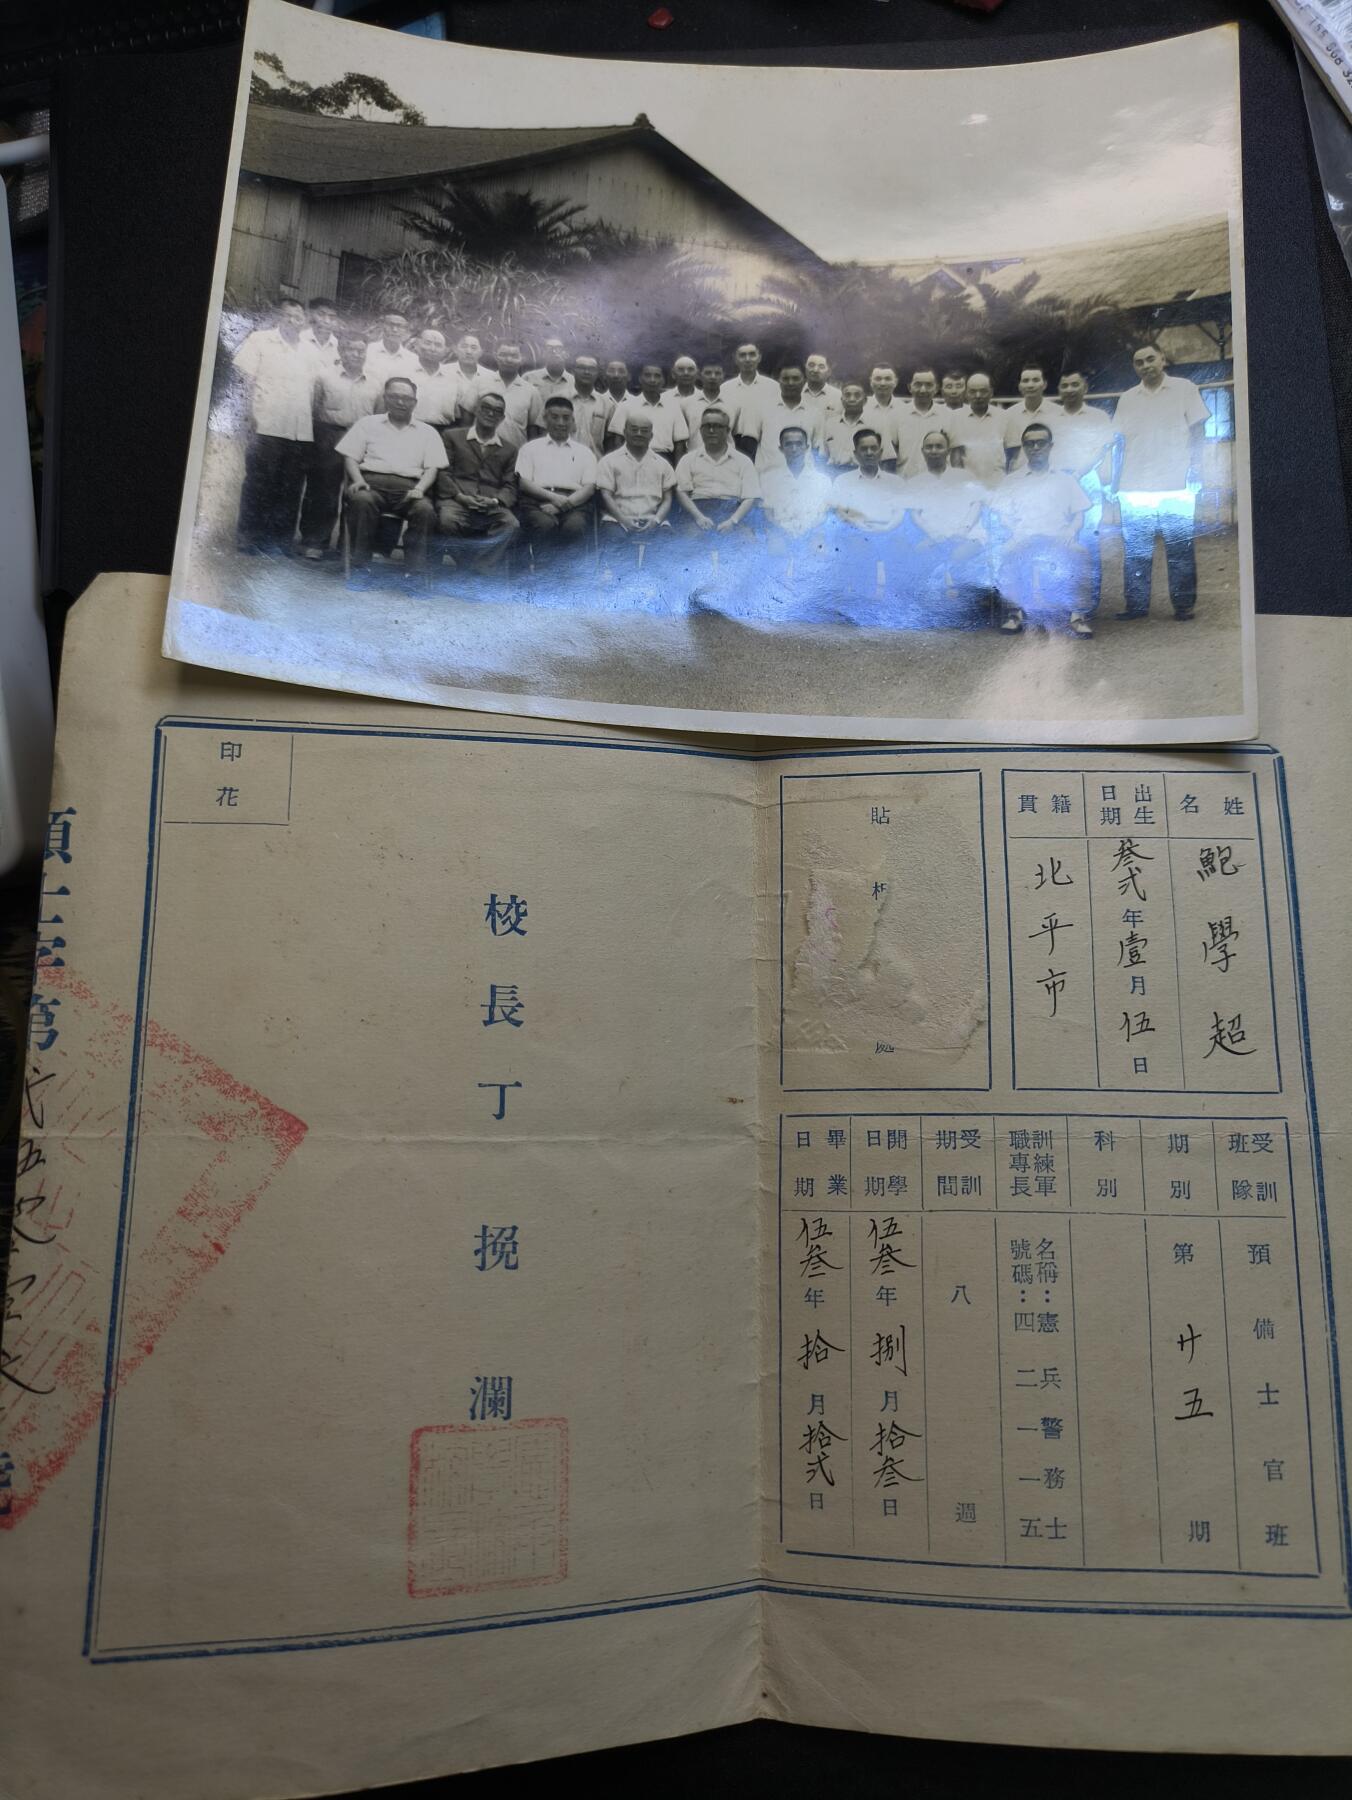 姓名
鮑學超
出生日期
叁弍年壹月伍日
籍貫
北平市
貼
處
受訓班隊
預備士官班
期別
第廿五期
科別
訓練軍職專長
名稱：憲兵警務士
號碼：四二一一五
受訓期間
八週
開學日期
伍叁年捌月拾叁日
畢業日期
伍叁年拾月拾弍日
校長丁挽瀾
印花
字第